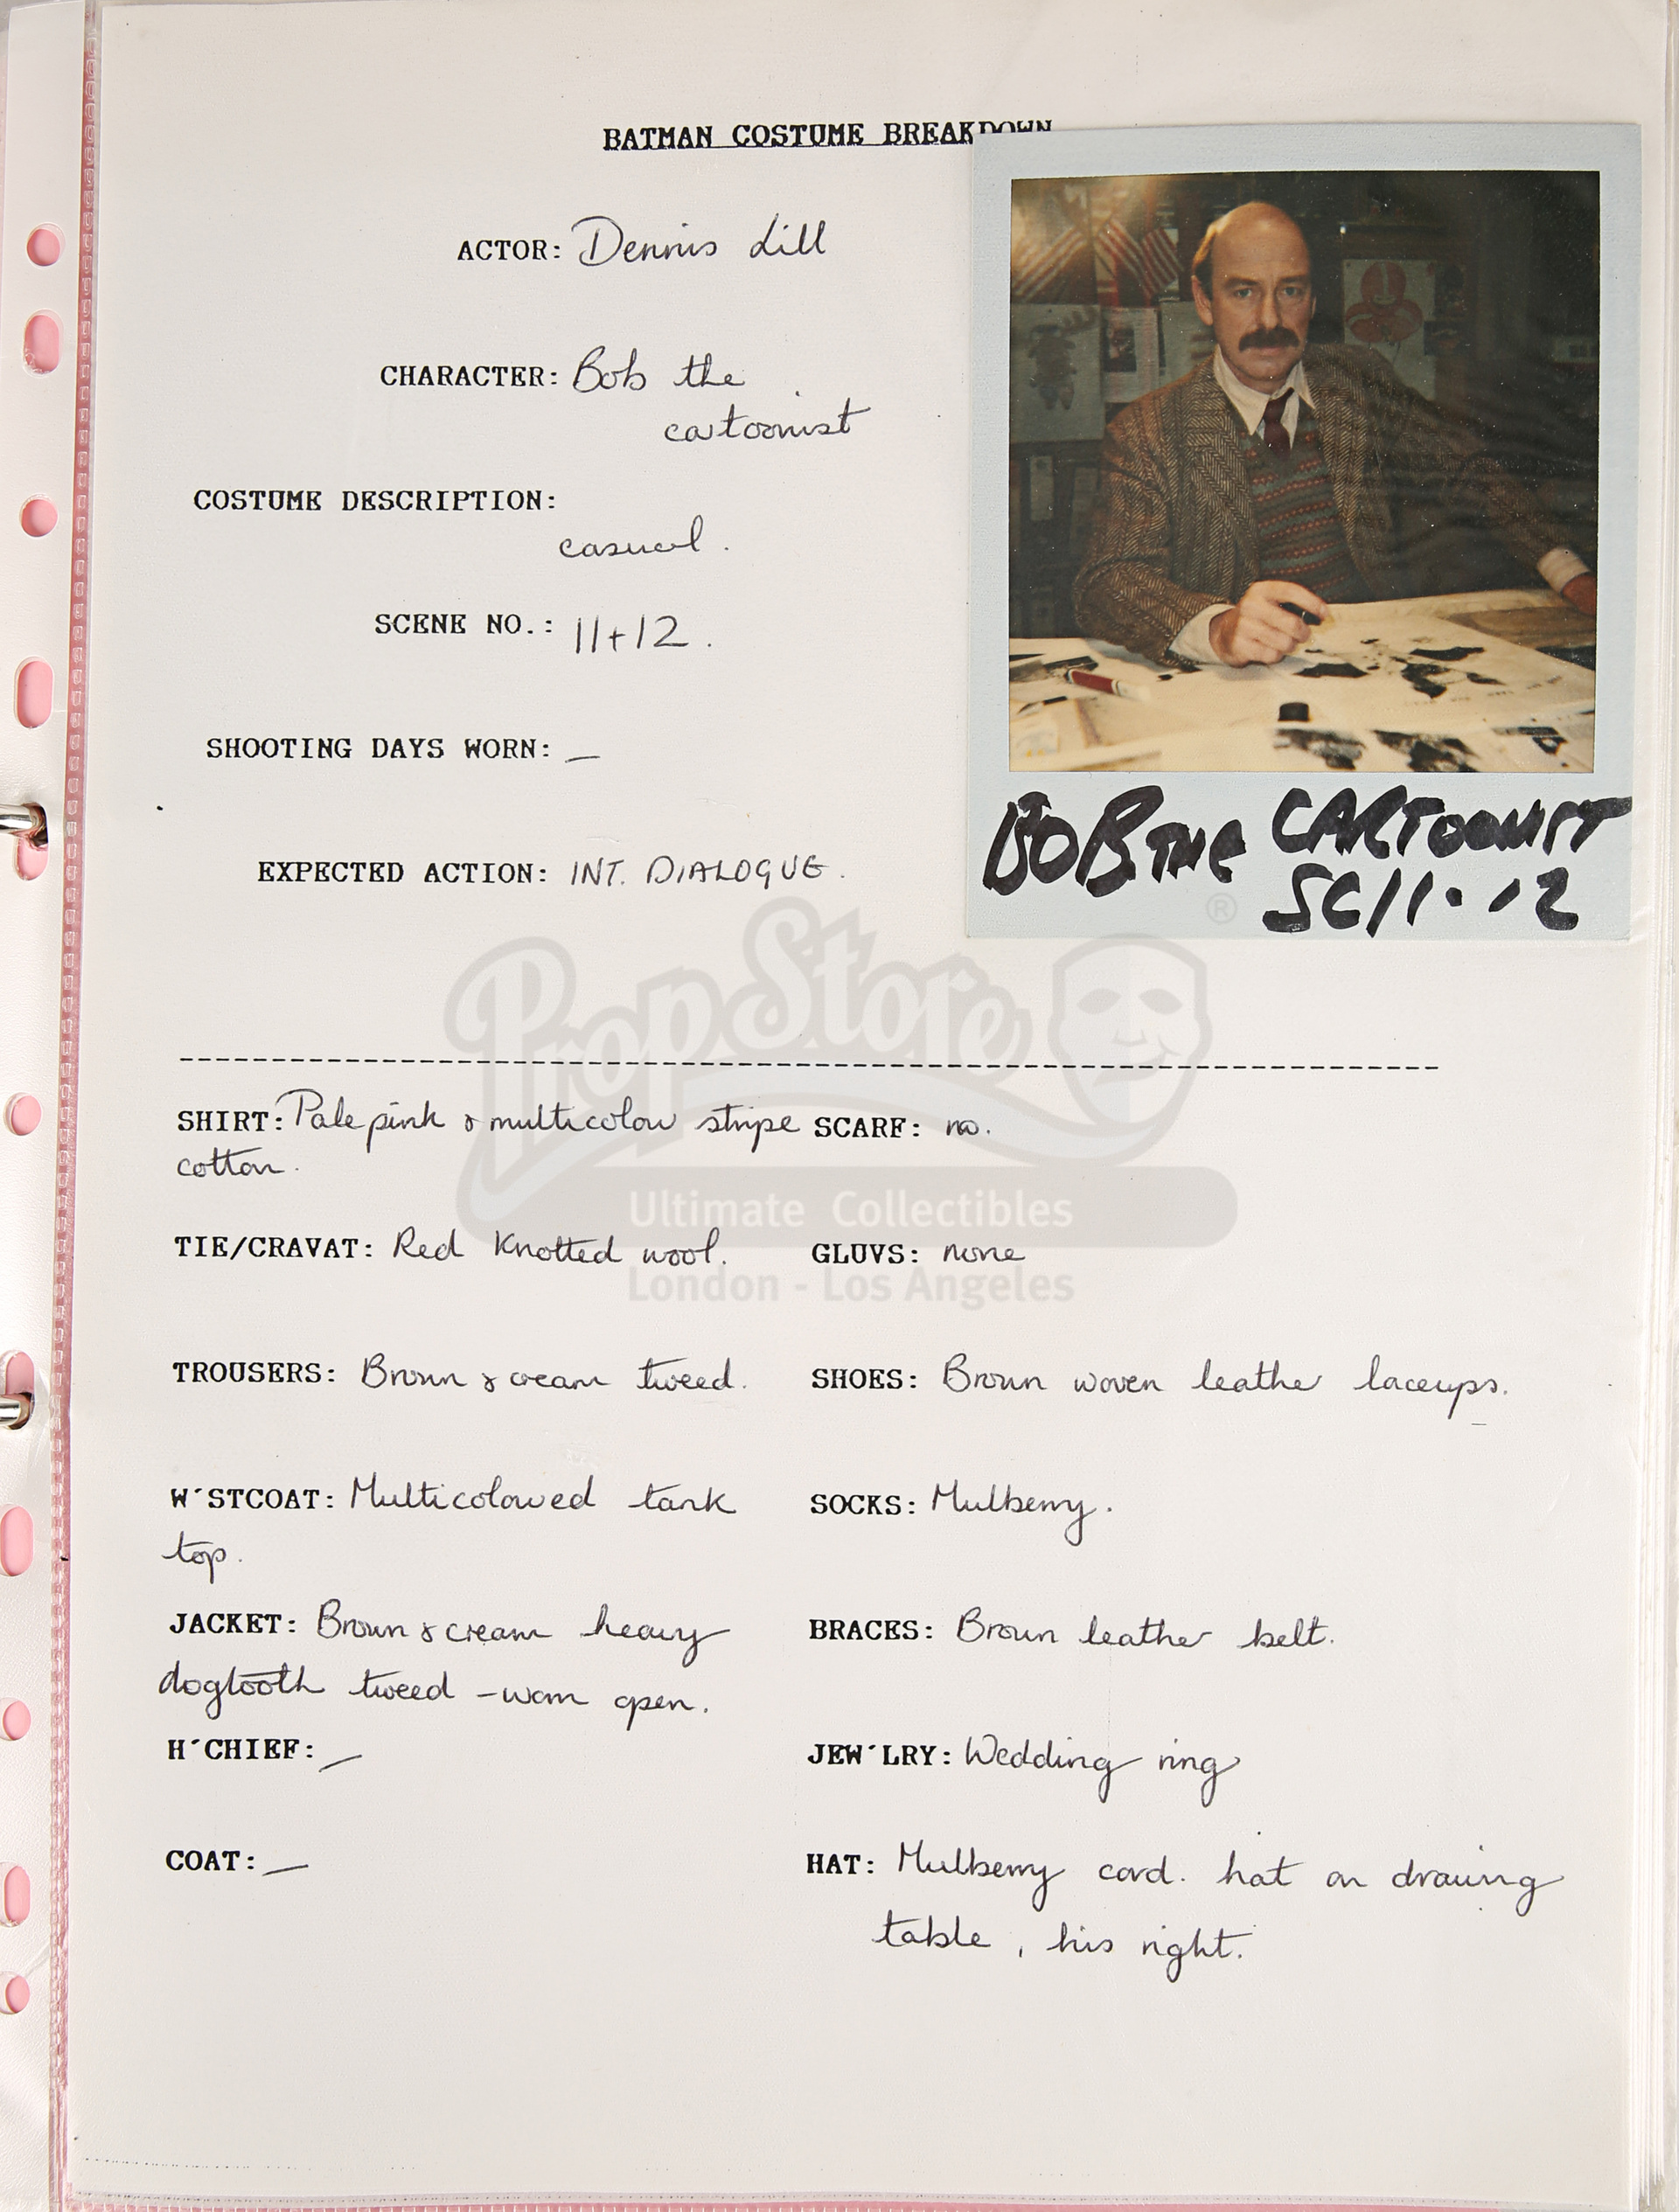 BATMAN COSTUME BREAKDOWN
ACTOR: Dennis Lill
CHARACTER: Bob the
cartoonist
COSTUME DESCRIPTION:
casual.
SCENE NO.: 11+12.
SHOOTING DAYS WORN: —
EXPECTED ACTION: INT. DIALOGUE.
BOB THE CARTOONIST
SC11·12
PropStore ®
Ultimate Collectibles
London - Los Angeles
SHIRT: Pale pink & multicolour stripe
cotton.
SCARF: no.
TIE/CRAVAT: Red Knotted wool.
GLUVS: none
TROUSERS: Brown & cream tweed.
SHOES: Brown woven leather laceups.
W´STCOAT: Multicoloured tank
top.
SOCKS: Mulberry.
JACKET: Brown & cream heavy
dogtooth tweed - worn open.
BRACES: Brown leather belt.
H´CHIEF: —
JEW´LRY: Wedding ring
COAT: —
HAT: Mulberry cord. hat on drawing
table, his right.